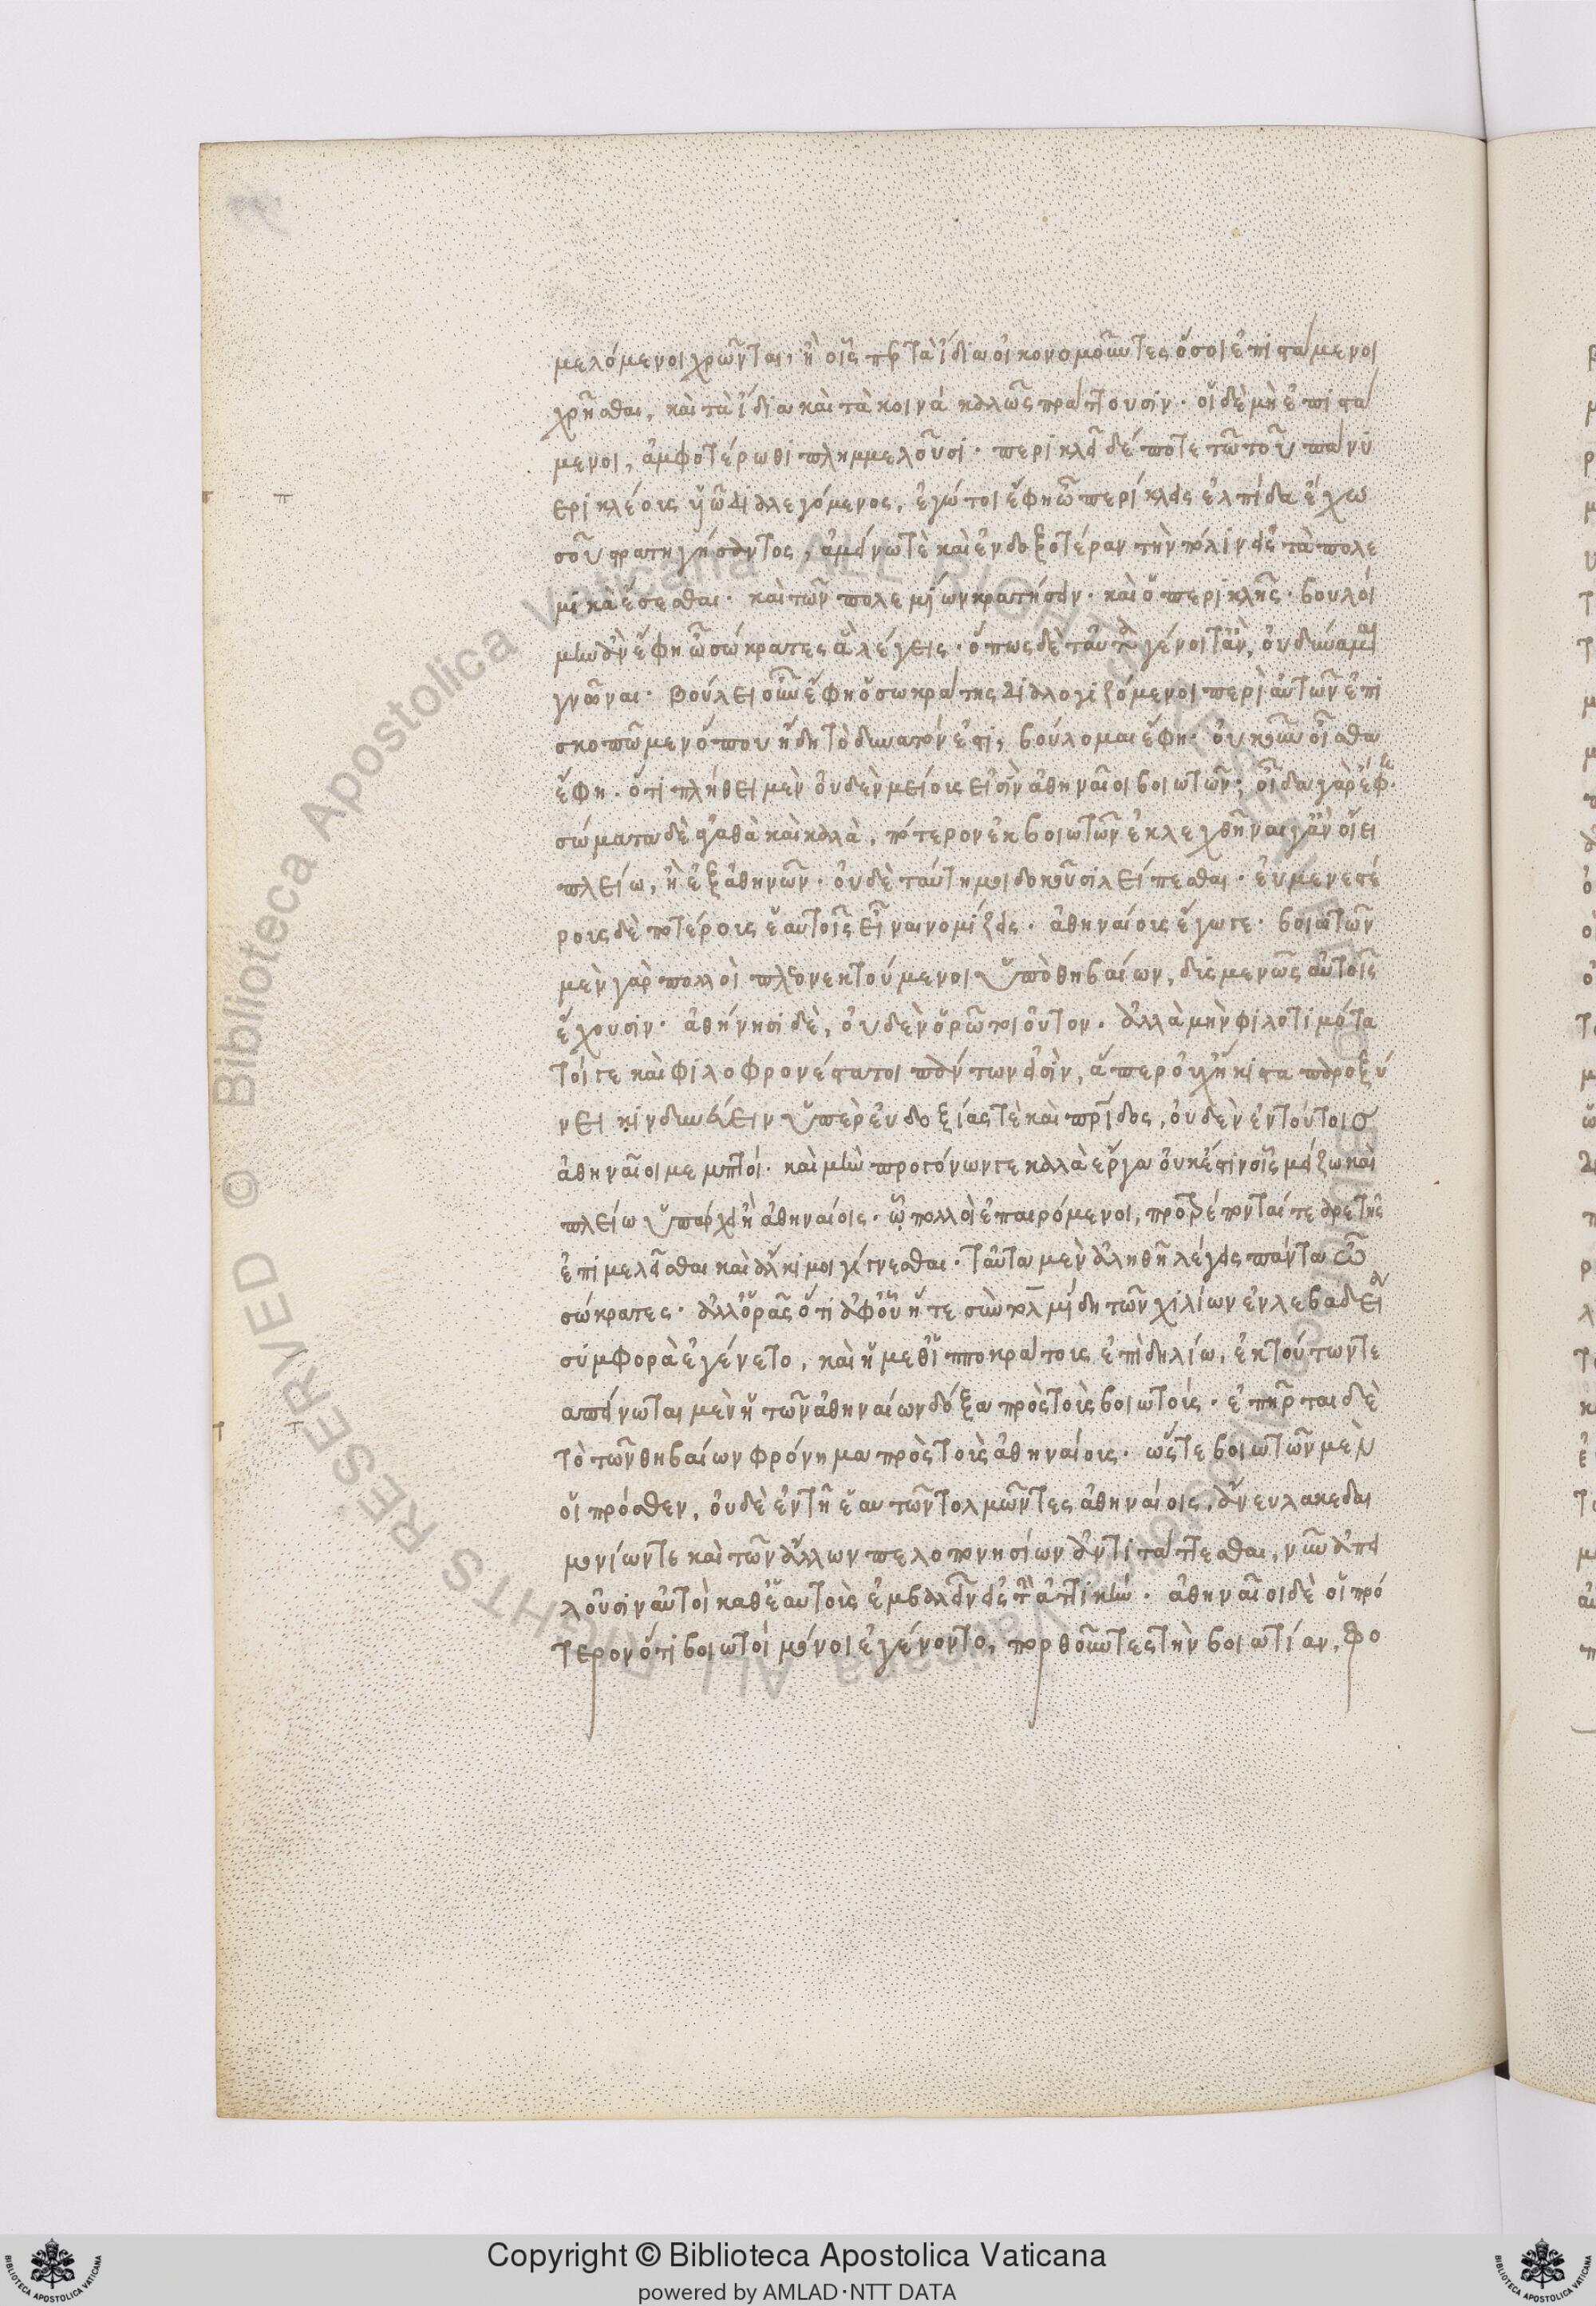 μελόμενοι χρῶνται, ἢ οἷς περ τὰ ἴδια οἰκονομοῦντες ὅσοι ἐπιστάμενοι
χρῆσθαι, καὶ τὰ ἴδια καὶ τὰ κοινὰ καλῶς πράττουσιν· οἱ δὲ μὴ ἐπιστά
μενοι, ἀμφοτέρωθι πλημμελοῦσι· περικλεῖ δέ ποτε τῶ τοῦ πάνυ
ερικλέους υἱῶ διαλεγόμενος, ἐγώ τοι ἔφη ὦ περίκλεις ἐλπίδα ἔχω
σοῦ στρατηγήσαντος, ἀμείνω τὲ καὶ ἐνδοξοτέραν τὴν πόλιν εἰς τὰ πολε
μικὰ ἔσεσθαι· καὶ τῶν πολεμίων κρατήσειν· καὶ ὁ περικλῆς· βουλοί
μην ἂν ἔφη ὦ σώκρατες ἃ λέγεις· ὅπως δὲ ταῦτα γένοιτ' ἂν, οὐ δύναμαι
γνῶναι· βούλει οὖν ἔφη ὁ σωκράτης διαλογιζόμενοι περὶ αὐτῶν ἐπι
σκοπῶμεν ὅπου ἤδη τὸ δυνατόν ἐστι, βούλομαι ἔφη· οὐκοῦν οἶσθα
ἔφη· ὅτι πλήθει μὲν οὐδὲν μείους εἰσὶν ἀθηναῖοι βοιωτῶν; οἶδα γὰρ ἔφη·
σώματα δὲ ἀγαθὰ καὶ καλὰ, πότερον ἐκ βοιωτῶν ἐκλεχθῆναι γ' ἂν οἴει
πλείω, ἢ ἐξ ἀθηνῶν· οὐδὲ ταύτη μοι δοκοῦσι λείπεσθαι· εὐμενεστέ
ρους δὲ ποτέρους ἑαυτοῖς εἶναι νομίζεις· ἀθηναίους ἔγωγε· βοιωτῶν
μὲν γὰρ πολλοὶ πλεονεκτούμενοι ὑπὸ θηβαίων, δυσμενῶς αὐτοῖς
ἔχουσιν· ἀθήνησι δὲ, οὐδὲν ὁρῶ τοιοῦτον· ἀλλὰ μὴν φιλοτιμότα
τοί γε καὶ φιλοφρονέστατοι πάντων εἰσὶν, ἅπερ οὐχ ἥκιστα παροξύ
νει κινδυνεύειν ὑπὲρ εὐδοξίας τὲ καὶ πατρίδος, οὐδὲν ἐν τούτοις
ἀθηναῖοι μεμπτοί· καὶ μὴν προγόνων γε καλὰ ἔργα οὐκ ἔστιν οἷς μείζω καὶ
πλείω ὑπάρχει ἢ ἀθηναίοις· ᾧ πολλοὶ ἐπαιρόμενοι, προτρέπονταί τε ἀρετῆς
ἐπιμελεῖσθαι καὶ ἄλκιμοι γίγνεσθαι· ταῦτα μὲν ἀληθῆ λέγεις πάντα ὦ
σώκρατες· ἀλλ' ὁρᾶς ὅτι ἀφ' οὗ ἥ τε σὺν τολμίδη τῶν χιλίων ἐν λεβαδείᾳ
σύμφορὰ ἐγένετο, καὶ ἡ μεθ' ἱπποκράτους ἐπὶ δηλίω, ἐκ τούτων τε
απείνωται μὲν ἡ τῶν ἀθηναίων δόξα πρὸς τοὺς βοιωτούς· ἐπῆρται δὲ
τὸ τῶν θηβαίων φρόνημα πρὸς τοὺς ἀθηναίους· ὥστε βοιωτῶν μὲν
οἱ πρόσθεν, οὐδὲ ἐν τῆ ἑαυτῶν τολμῶντες ἀθηναίοις, ἄνευ λακεδαι
μονίων τε καὶ τῶν ἄλλων πελοπονησίων ἀντιτάττεσθαι, νῦν ἀπει
λοῦσιν αὐτοὶ καθ' ἑαυτοὺς ἐμβαλεῖν εἰς τὴν ἀττικήν· ἀθηναῖοι δὲ οἱ πρό
τερον ὅτι βοιωτοί μόνοι ἐγένοντο, πορθοῦντες τὴν βοιωτίαν, φο